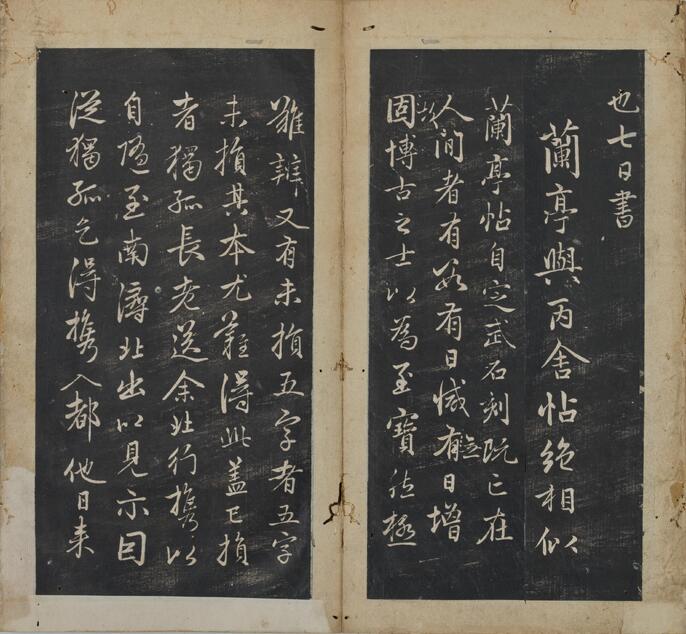 也七日書
蘭亭與丙舍帖絶相似
蘭亭帖自定武石刻既亡在
人間者有數有日減有無日增
固故博古之士以為至寶然極
難辨又有未損五字者五字
未損其本尤難得此蓋已損
者獨孤長老送余北行攜以
自隨至南潯北出以見示因
從獨孤乞得攜入都他日来